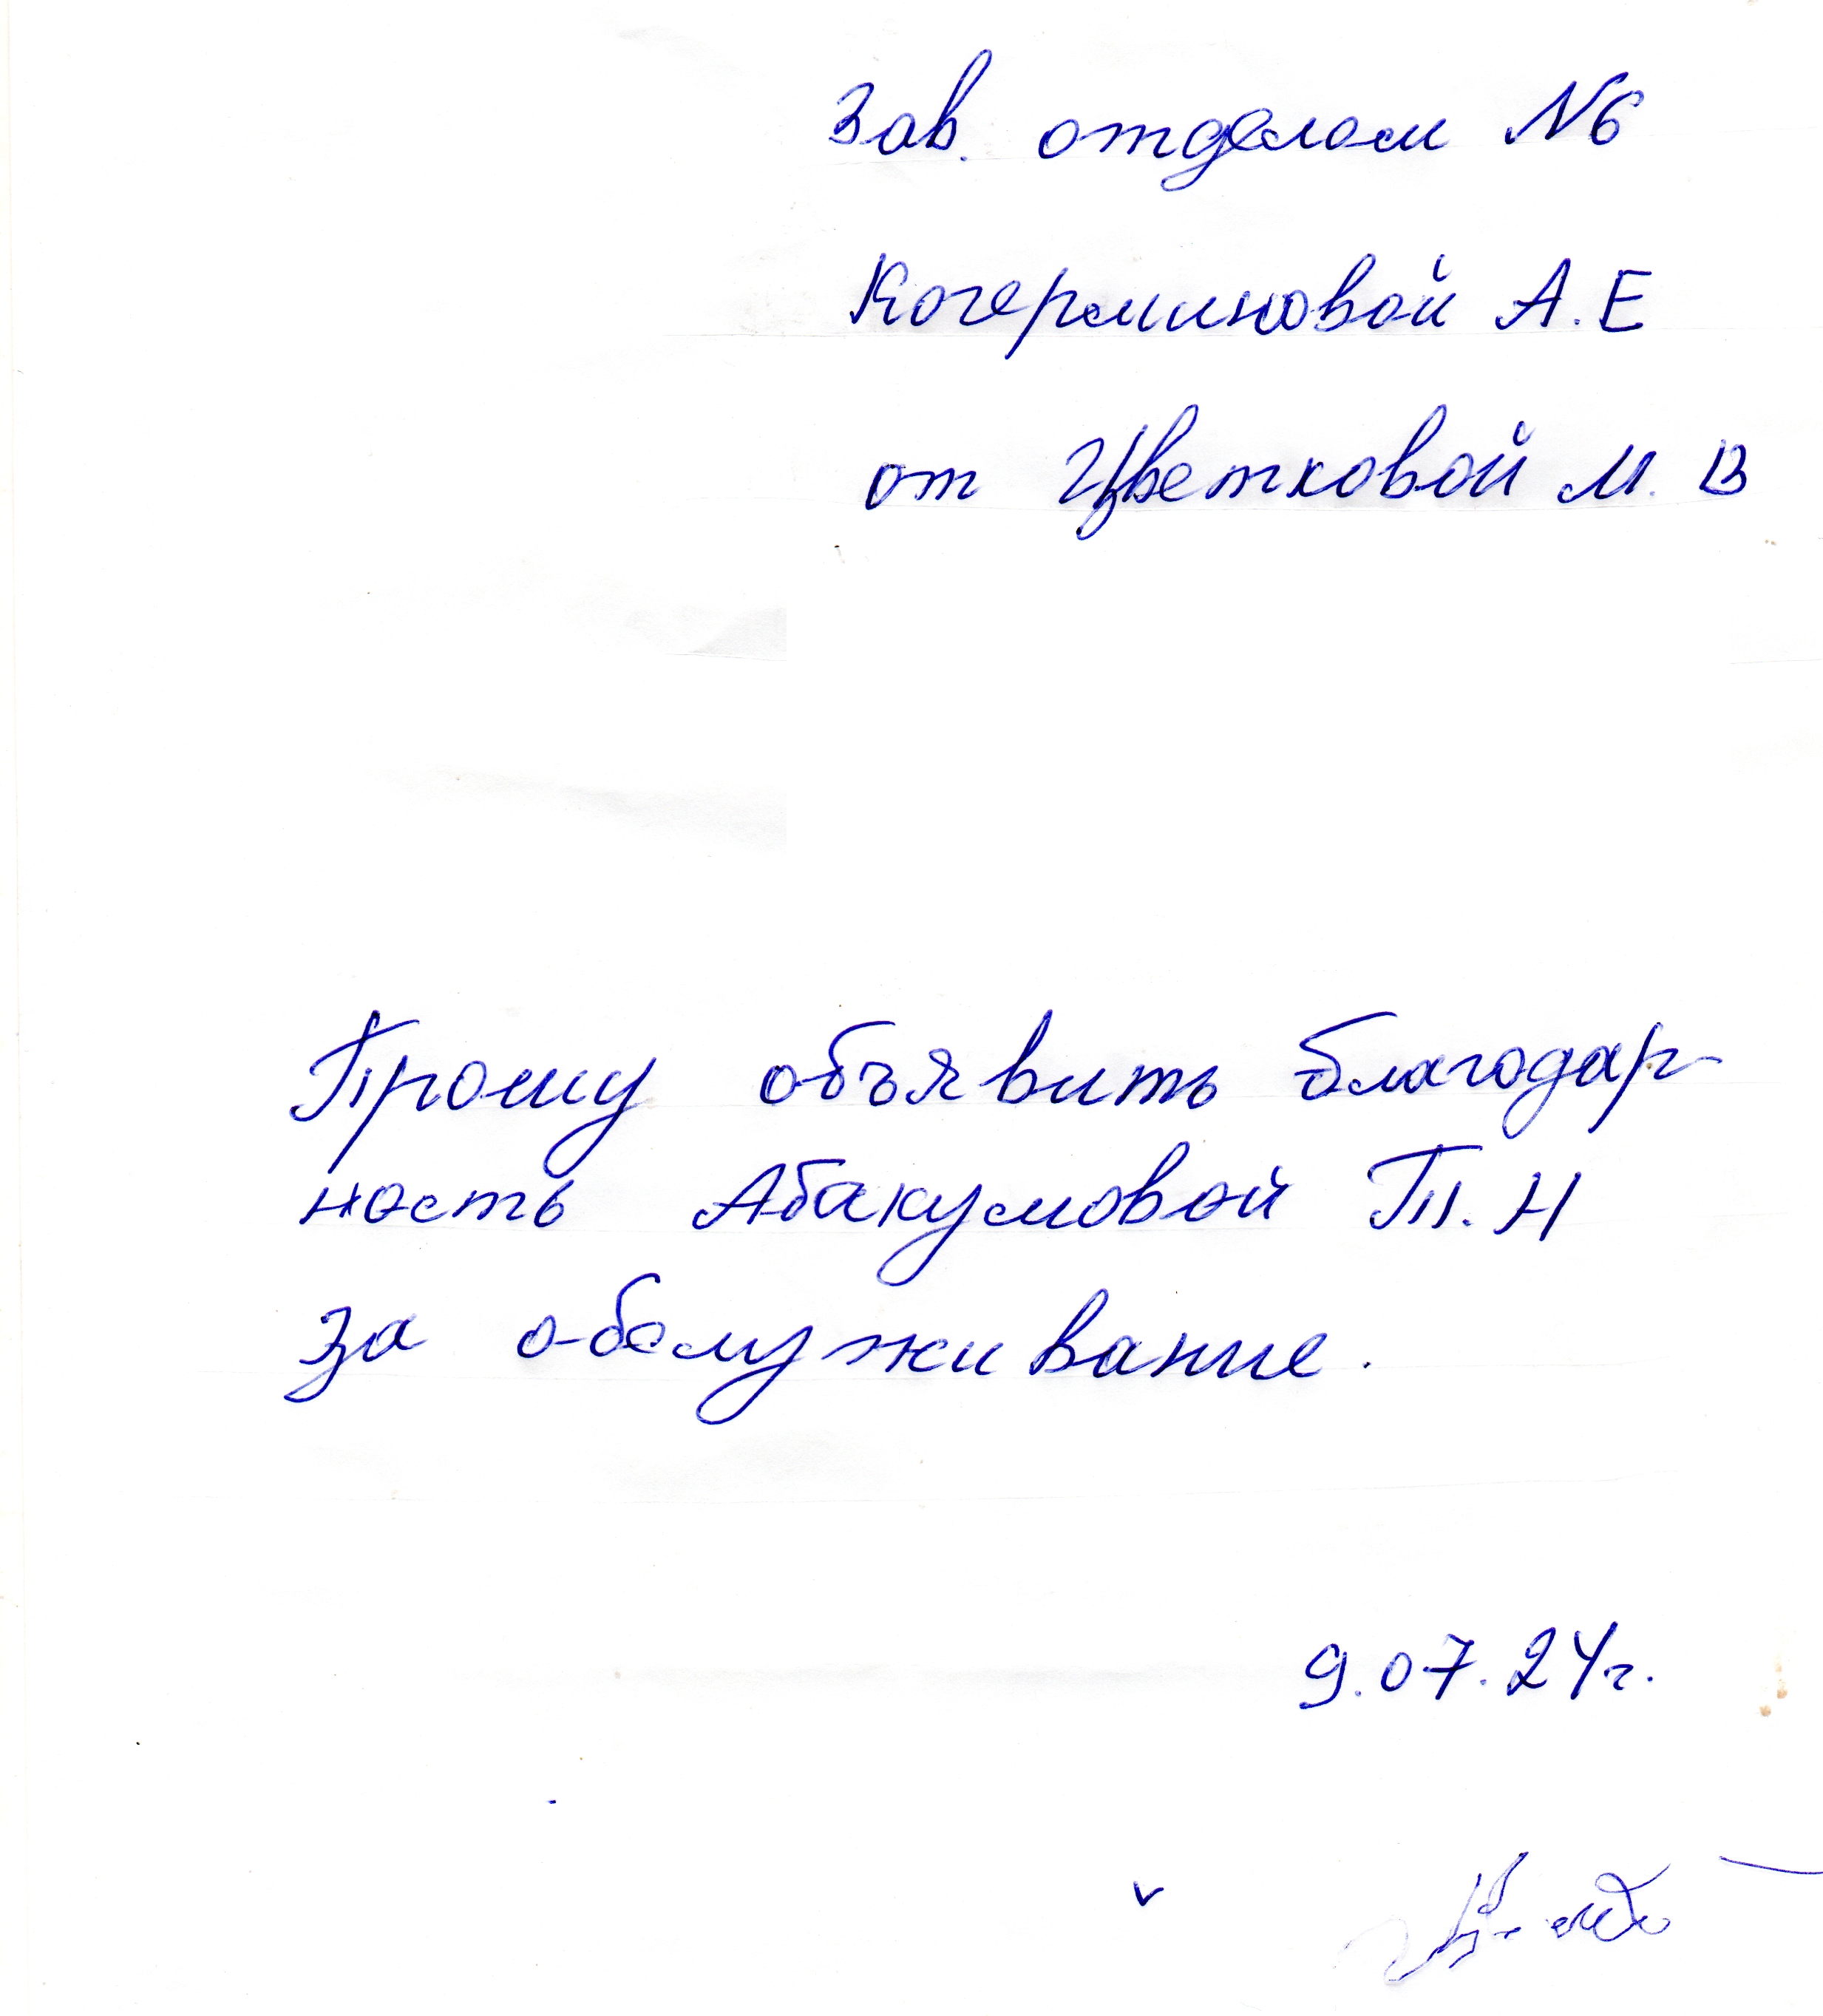 Зав. отделом N6
Когерминовой А.Е
от Цветковой М. В
Прошу объявить благодар-
ность Абакумовой Т.Н
за обслуживание.
9.07.24г.